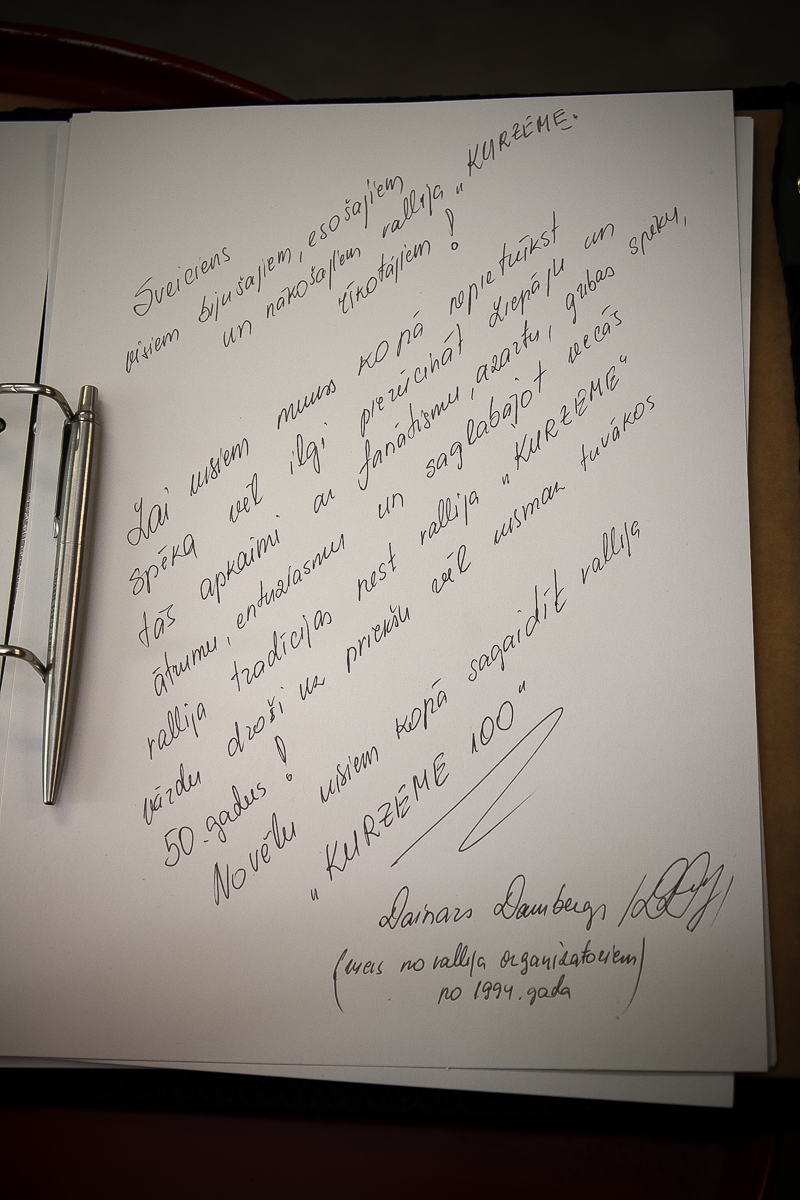 Sveiciens
visiem bijušajiem, esošajiem
un nākošajiem rallija „KURZEME"
rīkotājiem!
Lai visiem mums kopā nepietrūkst
spēka vēl ilgi pierūcināt Liepāju un
tās apkaimi ar fanātismu, azartu, gribas spēku,
ātrumu, entuziasmu un saglabājot vecās
rallija tradīcijas nest rallija „KURZEME"
vārdu droši uz priekšu vēl vismaz tuvākos
50. gadus!
Novēlu visiem kopā sagaidīt rallija
„KURZEME 100"
Dainars Dambergs
(viens no rallija organizatoriem)
no 1994. gada